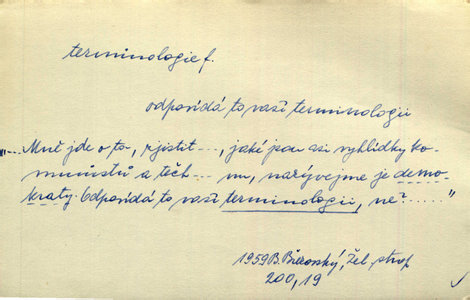 terminologie f.
odpovídá to vaší terminologii
"... Mně jde o to, zjistit ..., jaké jsou asi vyhlídky ko-
munistů a těch ... nu, nazývejme je demo-
kraty. Odpovídá to vaší terminologii, ne? ....."
1959 B. Březovský, Žel. strop
200, 19